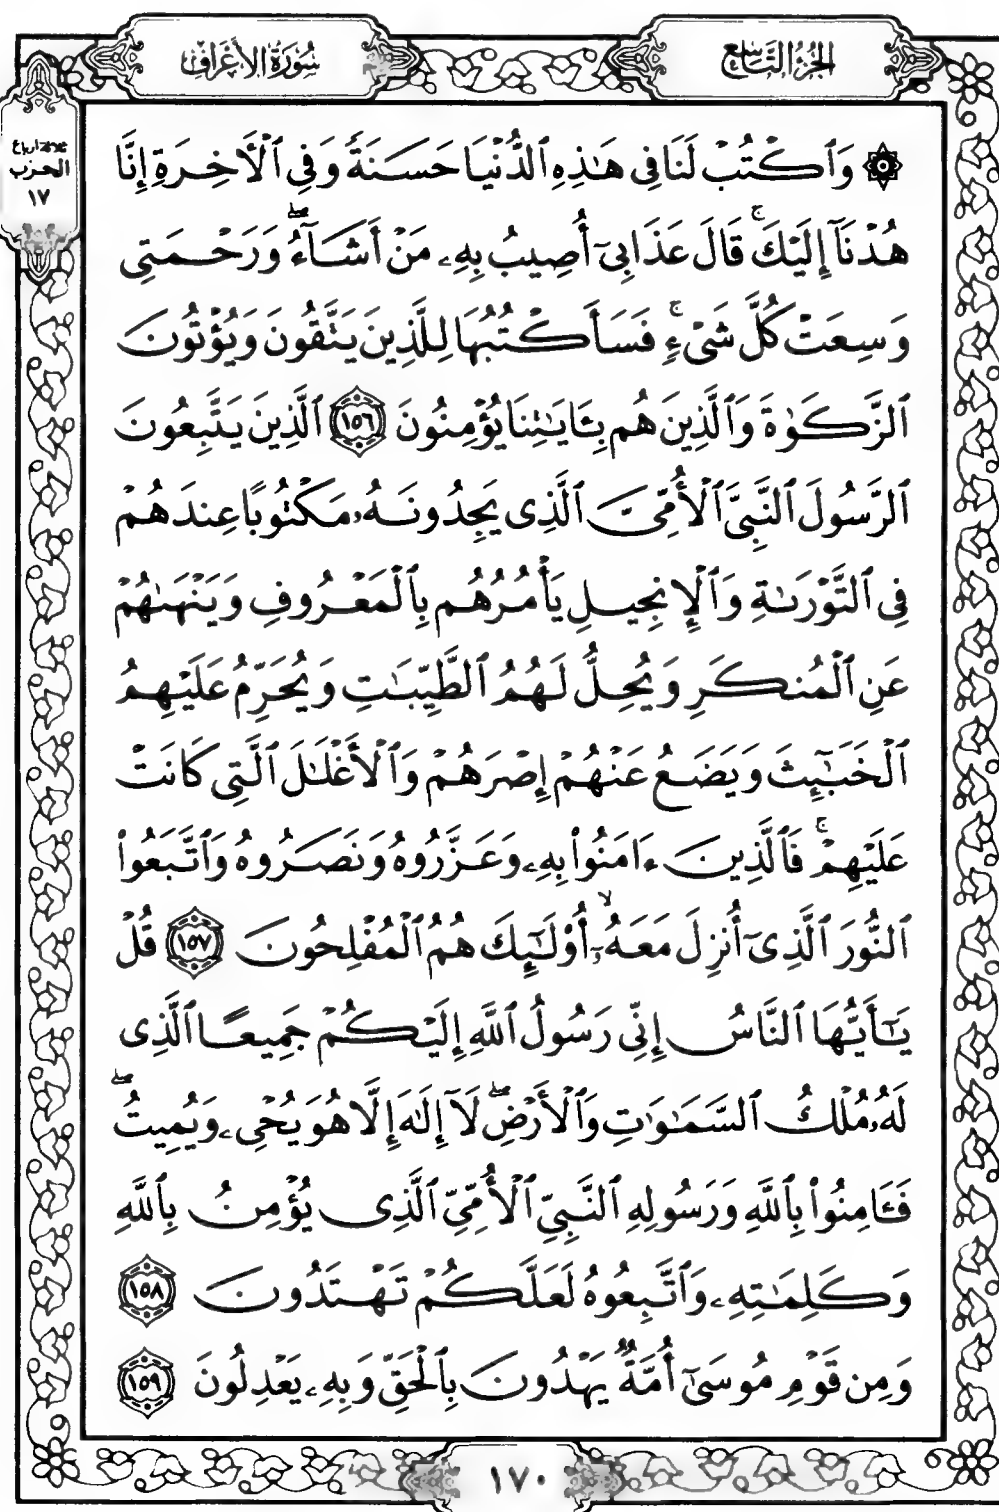 الجزء التاسع
سورة الأعراف
ثلاثة أرباع
الحزب
١٧
۞ وَٱكۡتُبۡ لَنَا فِي هَٰذِهِ ٱلدُّنۡيَا حَسَنَةٗ وَفِي ٱلۡأٓخِرَةِ إِنَّا
هُدۡنَآ إِلَيۡكَۚ قَالَ عَذَابِيٓ أُصِيبُ بِهِۦ مَنۡ أَشَآءُۖ وَرَحۡمَتِي
وَسِعَتۡ كُلَّ شَيۡءٖۚ فَسَأَكۡتُبُهَا لِلَّذِينَ يَتَّقُونَ وَيُؤۡتُونَ
ٱلزَّكَوٰةَ وَٱلَّذِينَ هُم بِـَٔايَٰتِنَا يُؤۡمِنُونَ ١٥٦ ٱلَّذِينَ يَتَّبِعُونَ
ٱلرَّسُولَ ٱلنَّبِيَّ ٱلۡأُمِّيَّ ٱلَّذِي يَجِدُونَهُۥ مَكۡتُوبًا عِندَهُمۡ
فِي ٱلتَّوۡرَىٰةِ وَٱلۡإِنجِيلِ يَأۡمُرُهُم بِٱلۡمَعۡرُوفِ وَيَنۡهَىٰهُمۡ
عَنِ ٱلۡمُنكَرِ وَيُحِلُّ لَهُمُ ٱلطَّيِّبَٰتِ وَيُحَرِّمُ عَلَيۡهِمُ
ٱلۡخَبَٰٓئِثَ وَيَضَعُ عَنۡهُمۡ إِصۡرَهُمۡ وَٱلۡأَغۡلَٰلَ ٱلَّتِي كَانَتۡ
عَلَيۡهِمۡۚ فَٱلَّذِينَ ءَامَنُواْ بِهِۦ وَعَزَّرُوهُ وَنَصَرُوهُ وَٱتَّبَعُواْ
ٱلنُّورَ ٱلَّذِيٓ أُنزِلَ مَعَهُۥٓۙ أُوْلَٰٓئِكَ هُمُ ٱلۡمُفۡلِحُونَ ١٥٧ قُلۡ
يَٰٓأَيُّهَا ٱلنَّاسُ إِنِّي رَسُولُ ٱللَّهِ إِلَيۡكُمۡ جَمِيعًا ٱلَّذِي
لَهُۥ مُلۡكُ ٱلسَّمَٰوَٰتِ وَٱلۡأَرۡضِۖ لَآ إِلَٰهَ إِلَّا هُوَ يُحۡيِۦ وَيُمِيتُۖ
فَـَٔامِنُواْ بِٱللَّهِ وَرَسُولِهِ ٱلنَّبِيِّ ٱلۡأُمِّيِّ ٱلَّذِي يُؤۡمِنُ بِٱللَّهِ
وَكَلِمَٰتِهِۦ وَٱتَّبِعُوهُ لَعَلَّكُمۡ تَهۡتَدُونَ ١٥٨
وَمِن قَوۡمِ مُوسَىٰٓ أُمَّةٞ يَهۡدُونَ بِٱلۡحَقِّ وَبِهِۦ يَعۡدِلُونَ ١٥٩
١٧٠